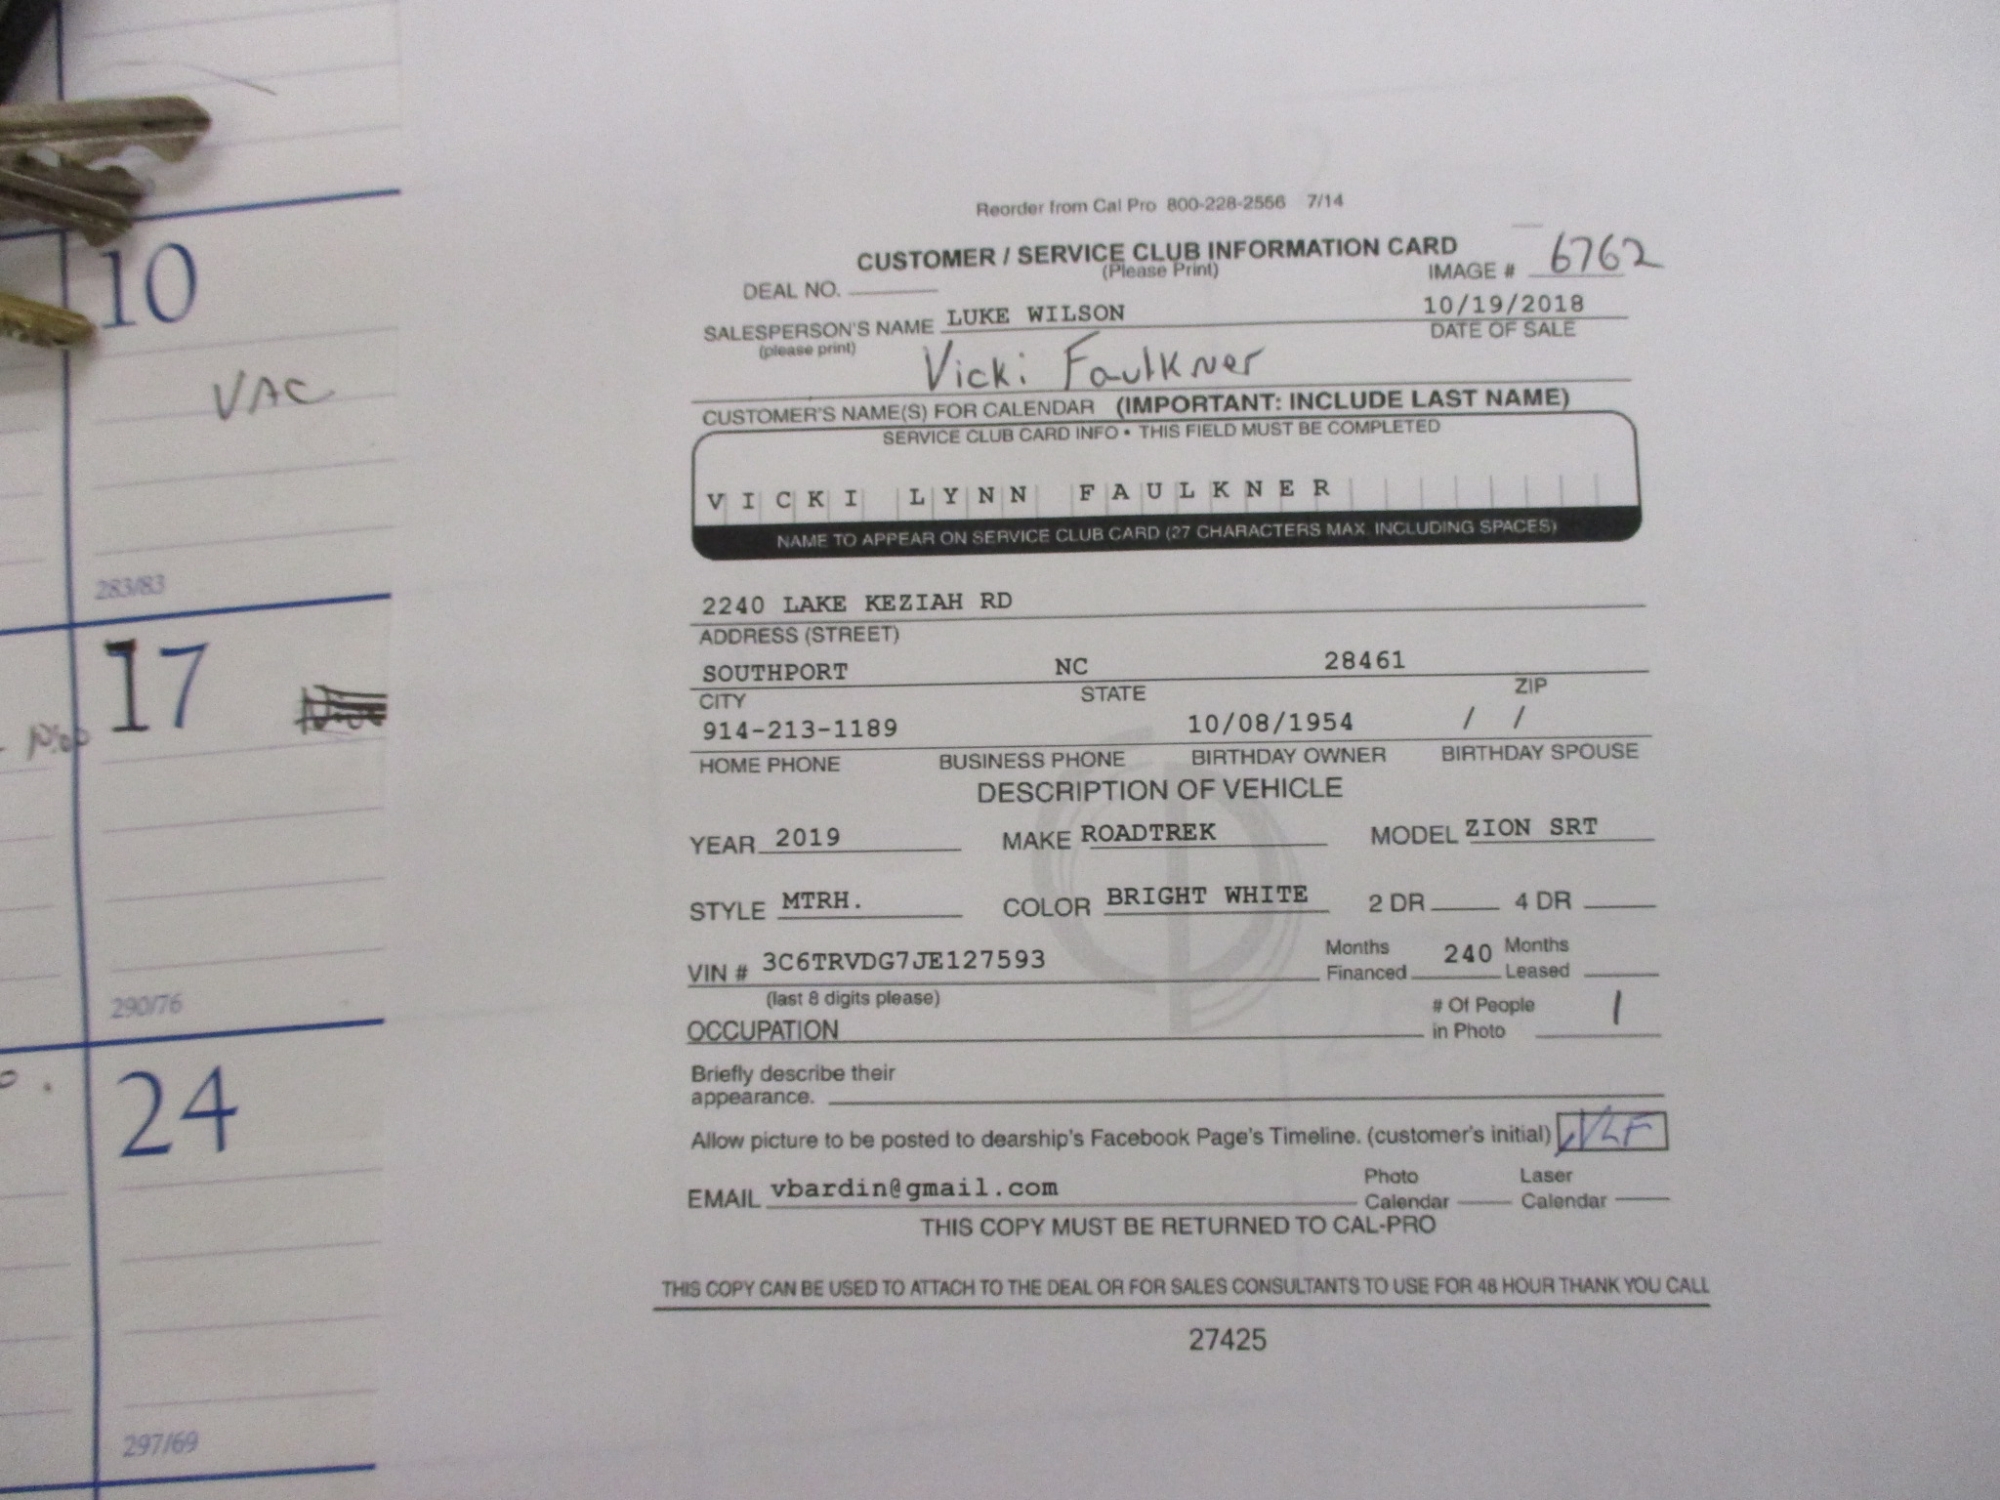 10
VAC
283/83
17
290/76
24
297/69
Reorder from Cal Pro 800-228-2556 7/14
CUSTOMER / SERVICE CLUB INFORMATION CARD
(Please Print)
IMAGE # 6762
DEAL NO.
SALESPERSON'S NAME LUKE WILSON 10/19/2018
(please print) DATE OF SALE
Vicki Faulkner
CUSTOMER'S NAME(S) FOR CALENDAR (IMPORTANT: INCLUDE LAST NAME)
SERVICE CLUB CARD INFO • THIS FIELD MUST BE COMPLETED
VICKI LYNN FAULKNER
NAME TO APPEAR ON SERVICE CLUB CARD (27 CHARACTERS MAX. INCLUDING SPACES)
2240 LAKE KEZIAH RD
ADDRESS (STREET)
SOUTHPORT NC 28461
CITY STATE ZIP
914-213-1189 10/08/1954 / /
HOME PHONE BUSINESS PHONE BIRTHDAY OWNER BIRTHDAY SPOUSE
DESCRIPTION OF VEHICLE
YEAR 2019 MAKE ROADTREK MODEL ZION SRT
STYLE MTRH. COLOR BRIGHT WHITE 2 DR 4 DR
VIN # 3C6TRVDG7JE127593 Months Financed 240 Months Leased
(last 8 digits please)
OCCUPATION # Of People in Photo 1
Briefly describe their
appearance.
Allow picture to be posted to dearship's Facebook Page's Timeline. (customer's initial) VLF
EMAIL vbardin@gmail.com Photo Calendar Laser Calendar
THIS COPY MUST BE RETURNED TO CAL-PRO
THIS COPY CAN BE USED TO ATTACH TO THE DEAL OR FOR SALES CONSULTANTS TO USE FOR 48 HOUR THANK YOU CALL
27425